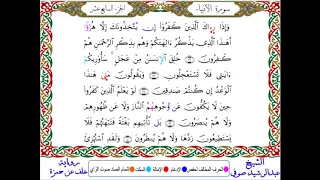 سورة الأنبياء
الجزء السابع عشر
وَإِذَا رَءَاكَ الَّذِينَ كَفَرُوا إِن يَتَّخِذُونَكَ إِلَّا هُزُؤًا
أَهَٰذَا الَّذِي يَذْكُرُ ءَالِهَتَكُمْ وَهُم بِذِكْرِ الرَّحْمَٰنِ هُمْ
كَٰفِرُونَ خُلِقَ الْإِنسَٰنُ مِنْ عَجَلٍ سَأُورِيكُمْ
ءَايَٰتِي فَلَا تَسْتَعْجِلُونِ وَيَقُولُونَ مَتَىٰ هَٰذَا
الْوَعْدُ إِن كُنتُمْ صَٰدِقِينَ لَوْ يَعْلَمُ الَّذِينَ كَفَرُوا
حِينَ لَا يَكُفُّونَ عَن وُجُوهِهِمُ النَّارَ وَلَا عَن ظُهُورِهِمْ
وَلَا هُمْ يُنصَرُونَ بَلْ تَأْتِيهِم بَغْتَةً فَتَبْهَتُهُمْ فَلَا
يَسْتَطِيعُونَ رَدَّهَا وَلَا هُمْ يُنظَرُونَ وَلَقَدِ اسْتُهْزِئَ
الشيخ
عبدالرشيد صوفي
رواية
خلف عن حمزة